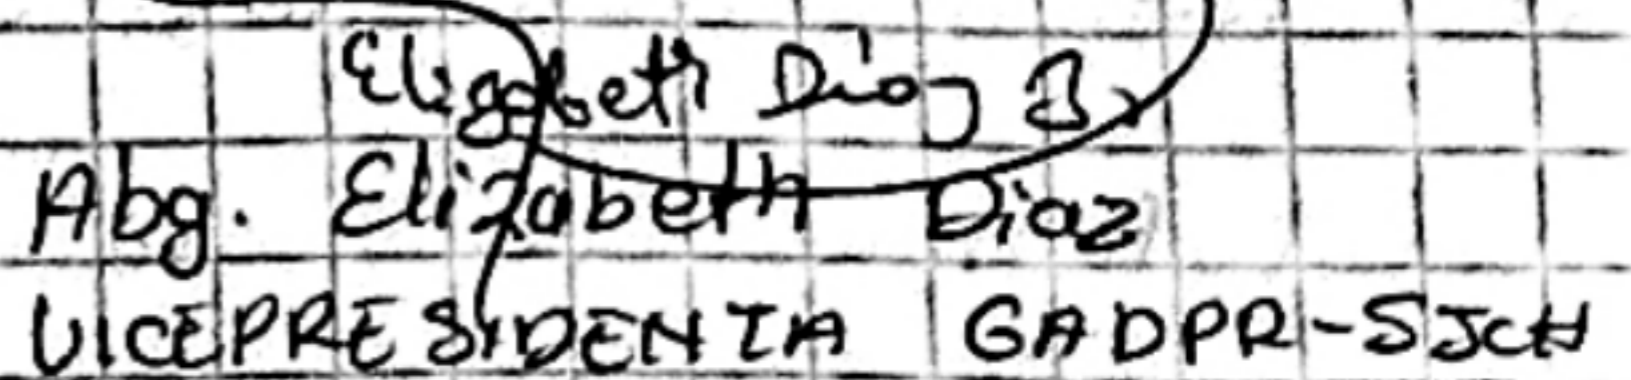 Elizabeth Díaz B.
Abg. Elizabeth Diaz
VICEPRESIDENTA GADPR-SJCH